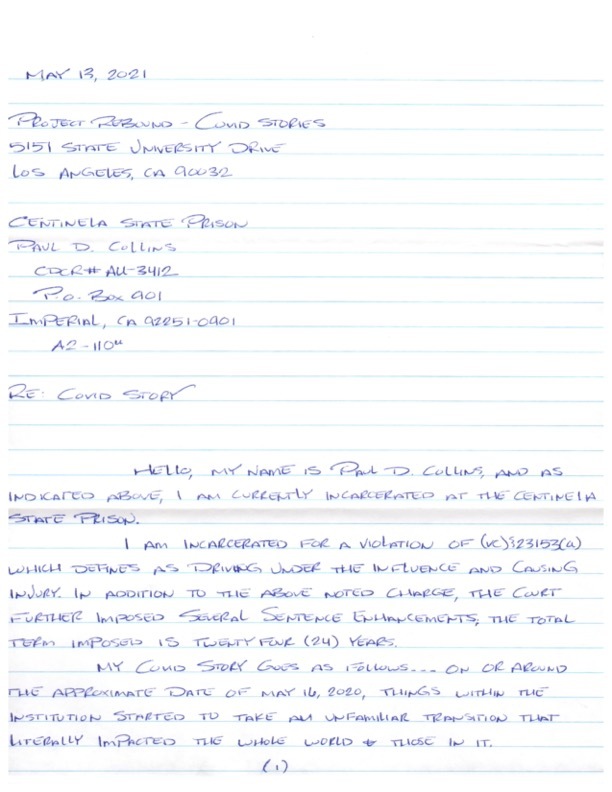 MAY 13, 2021
PROJECT REBOUND - COVID STORIES
5151 STATE UNIVERSITY DRIVE
LOS ANGELES, CA 90032
CENTINELA STATE PRISON
PAUL D. COLLINS
CDCR# AU-3412
P.O. BOX 901
IMPERIAL, CA 92251-0901
A2-110u
RE: COVID STORY
HELLO, MY NAME IS PAUL D. COLLINS, AND AS
INDICATED ABOVE, I AM CURRENTLY INCARCERATED AT THE CENTINELA
STATE PRISON.
I AM INCARCERATED FOR A VIOLATION OF (VC)§23153(A)
WHICH DEFINES AS DRIVING UNDER THE INFLUENCE AND CAUSING
INJURY. IN ADDITION TO THE ABOVE NOTED CHARGE, THE COURT
FURTHER IMPOSED SEVERAL SENTENCE ENHANCEMENTS, THE TOTAL
TERM IMPOSED IS TWENTY FOUR (24) YEARS.
MY COVID STORY GOES AS FOLLOWS... ON OR AROUND
THE APPROXIMATE DATE OF MAY 16, 2020, THINGS WITHIN THE
INSTITUTION STARTED TO TAKE AN UNFAMILIAR TRANSITION THAT
LITERALLY IMPACTED THE WHOLE WORLD & THOSE IN IT.
(1)